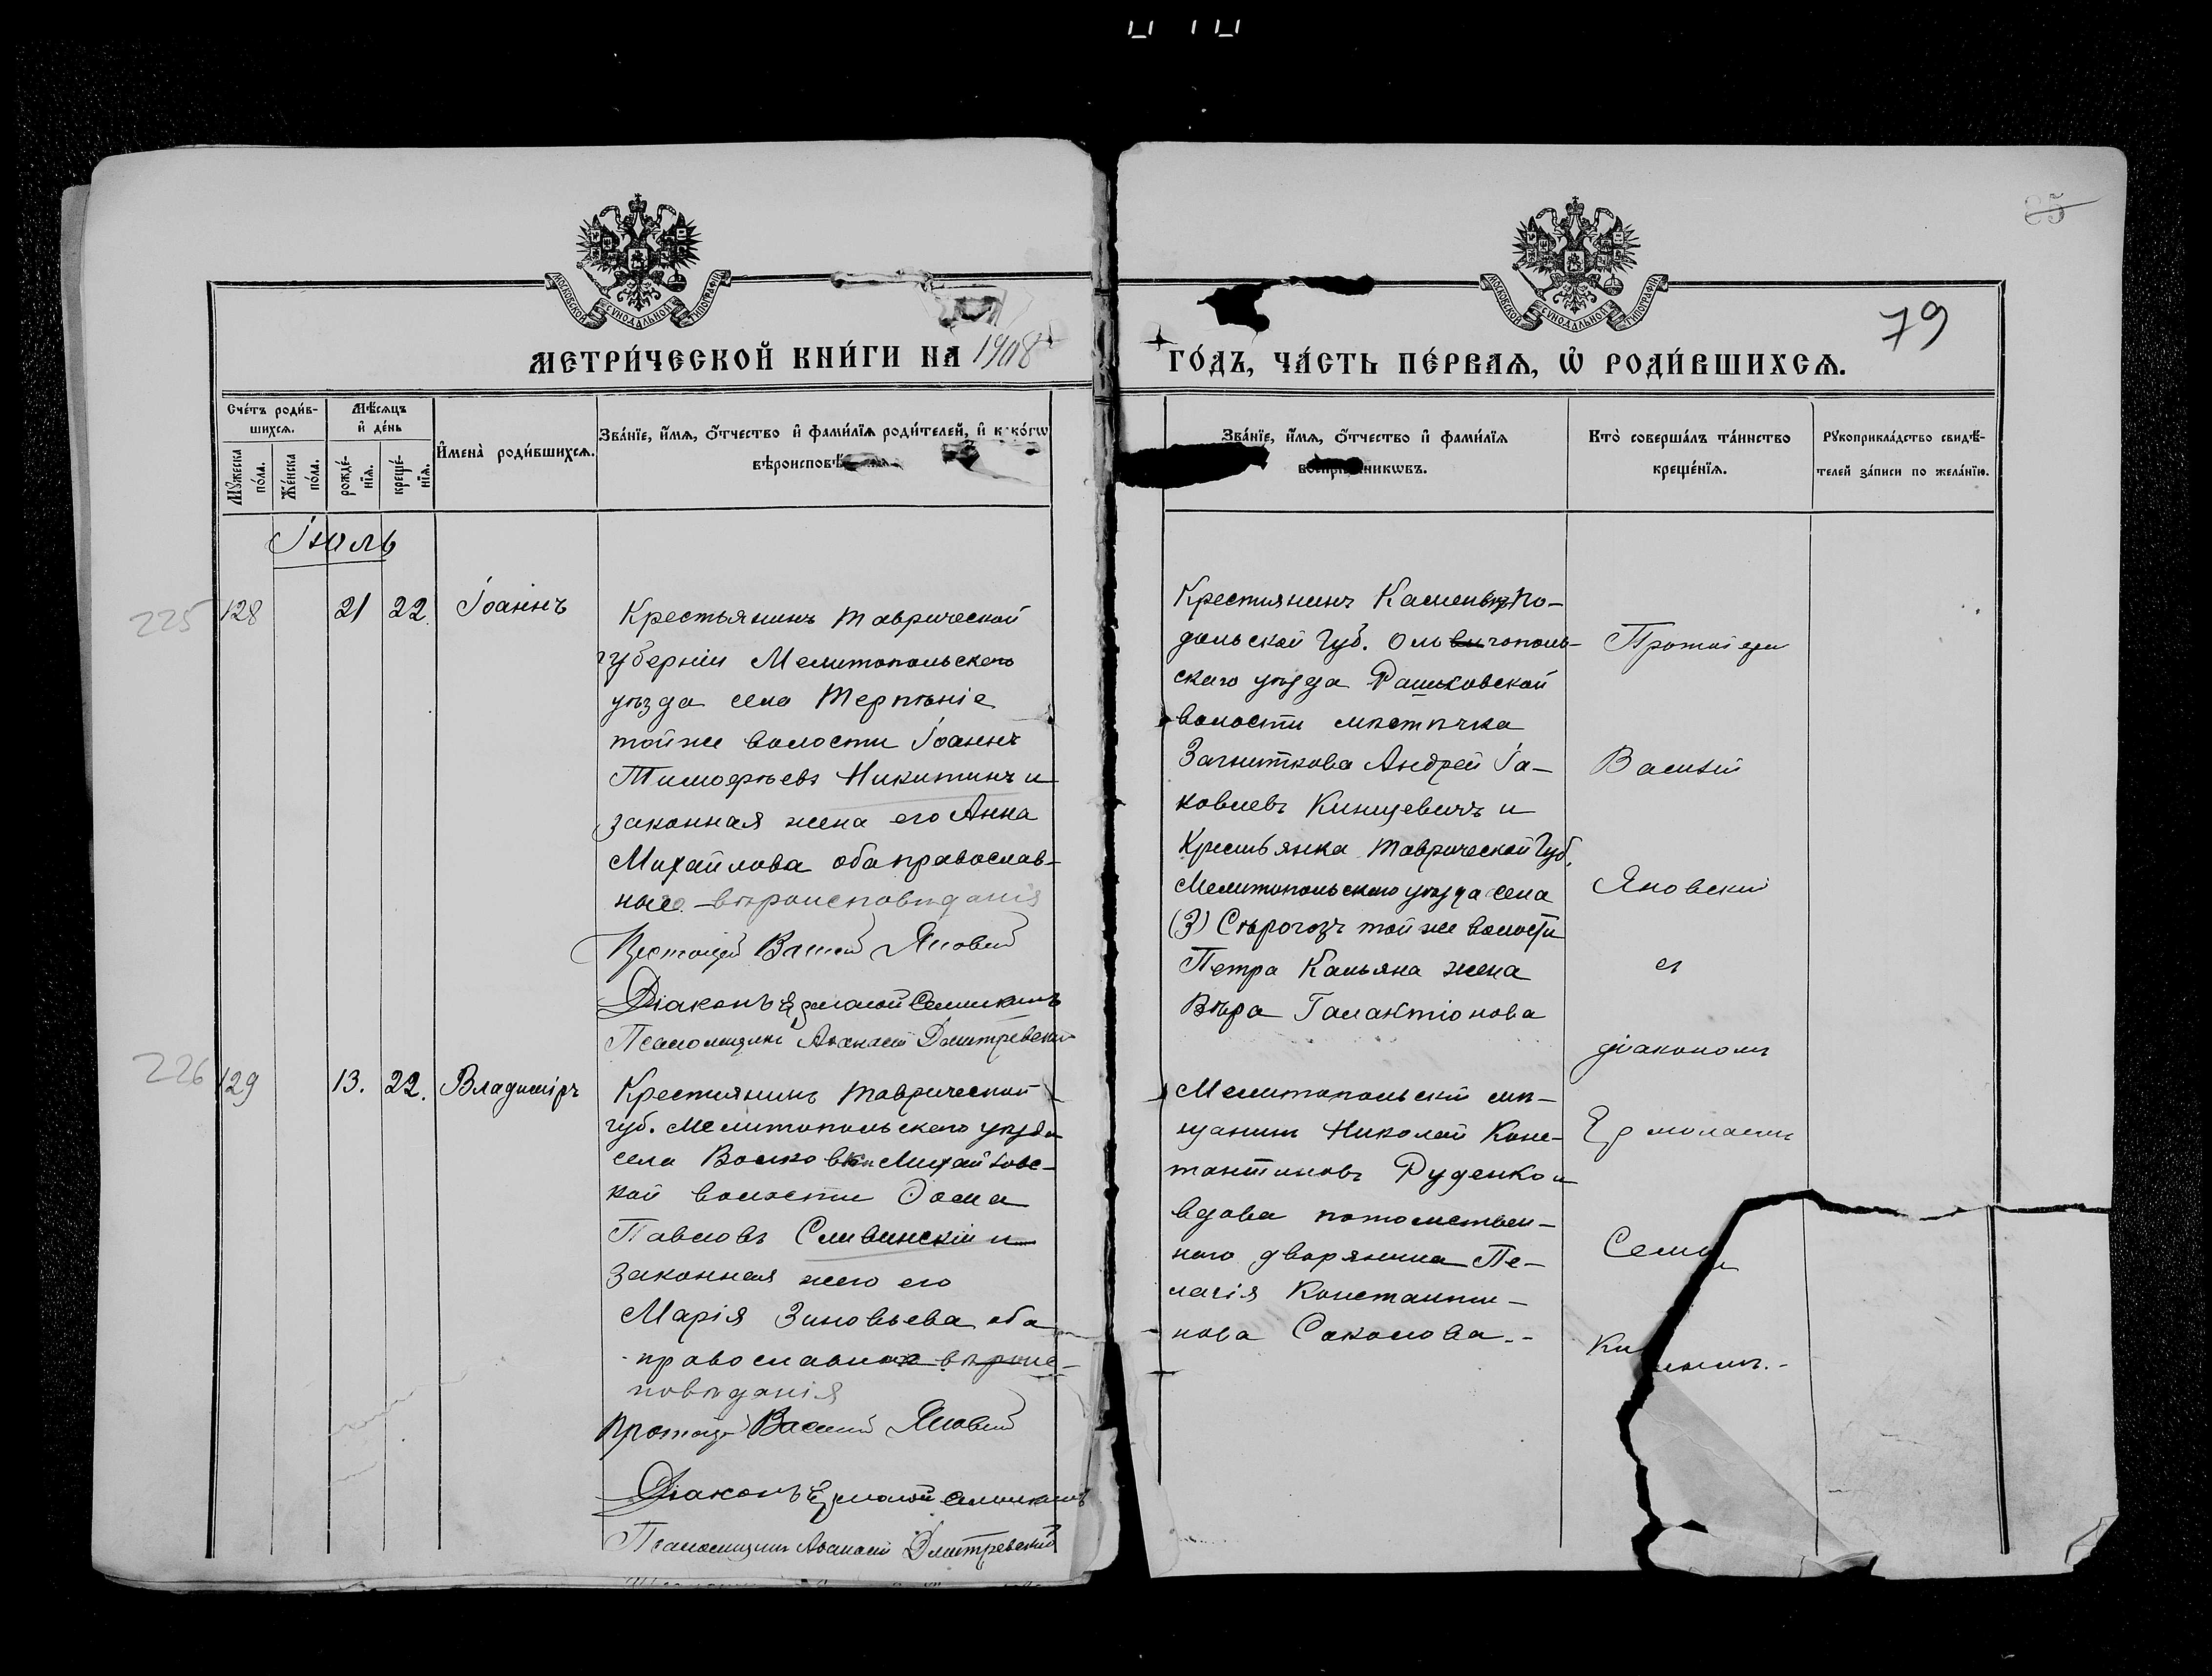 85
79
МОСКОВСКОЙ СѴНОДАЛЬНОЙ ТИПОГРАФІИ
МОСКОВСКОЙ СѴНОДАЛЬНОЙ ТИПОГРАФІИ
МЕТРИ́ЧЕСКОЙ КНИ́ГИ НА 1908
ГО́ДЪ, ЧА́СТЬ ПЕ́РВАѦ, Ѡ҆ РОДИ́ВШИХСѦ.
Сче́тъ роди́в-
шихсѧ.
Мꙋ́жеска по́ла.
Же́нска по́ла.
Мѣ́сѧцъ
и҆ де́нь
рожде́-нїѧ.
креще́-нїѧ.
И҆мена̀ роди́вшихсѧ.
Зва́нїе, и҆́мѧ, ѻ҆́тчество и҆ фами́лїѧ роди́телей, и҆ како́гѡ
вѣроисповѣ
Зва́нїе, и҆́мѧ, ѻ҆́тчество и҆ фами́лїѧ
воспрїе́мникѡвъ.
Кто̀ соверша́лъ та́инство
креще́нїѧ.
Рꙋкоприкла́дство свидѣ́-
телей за́писи по жела́нїю.
Іюль
225
128
21
22.
Іоаннъ
Крестьянинъ Таврической
губерніи Мелитопольскаго
уѣзда села Терпѣніе
той же волости Іоаннъ
Тимофѣевъ Никитинъ и
законная жена его Анна
Михайлова оба православ-
наго вѣроисповѣданія
Протоіерей Василій Яновскій
Діаконъ Ермолай Семикинъ
Псаломщикъ Аѳанасій Дмитревскій
Крестьянинъ Каменецъ По-
дольской Губ. Ольвіополь-
скаго уѣзда Рашковской
волости мѣстечка
Загниткова Андрей Іа-
ковлевъ Киницевичъ и
Крестьянка Таврической Губ.
Мелитопольскаго уѣзда села
(З) Сѣрогозъ той же волости
Петра Кальяна жена
Вѣра Галактіонова
Протоіерей
Василій
Яновскій
съ
діакономъ
Ермолаемъ
Семи
Ки
226
129
13.
22.
Владиміръ
Крестьянинъ Таврической
губ. Мелитопольскаго уѣзда
села Волковки Михайловс-
кой волости Ѳома
Павловъ Сливинскій и
законная жена его
Марія Зиновьева оба
православнаго вѣроис-
повѣданія
Протоіер Василій Яновскій
Діаконъ Ермолай Семикинъ
Псаломщикъ Аѳанасій Дмитревскій
Мелитопольскій мѣ-
щанинъ Николай Конс-
тантиновъ Руденко и
вдова потомствен-
наго дворянина Пе-
лагія Константи-
нова Соколова.-